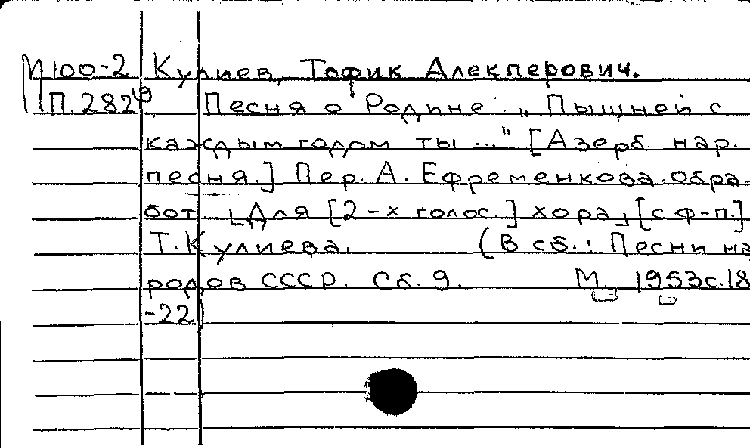 М100-2 Кулиев, Тофик Алекперович.
П.282 Песня о Родине. „Пышней с
каждым годом ты ..." [Азерб. нар.
песня.] Пер. А. Ефременкова. Обра
бот. Для [2-х голос.] хора, [с ф-п.]
Т. Кулиева. (В сб.: Песни на
родов СССР. Сб. 9. М. 1953 с. 18
-22)